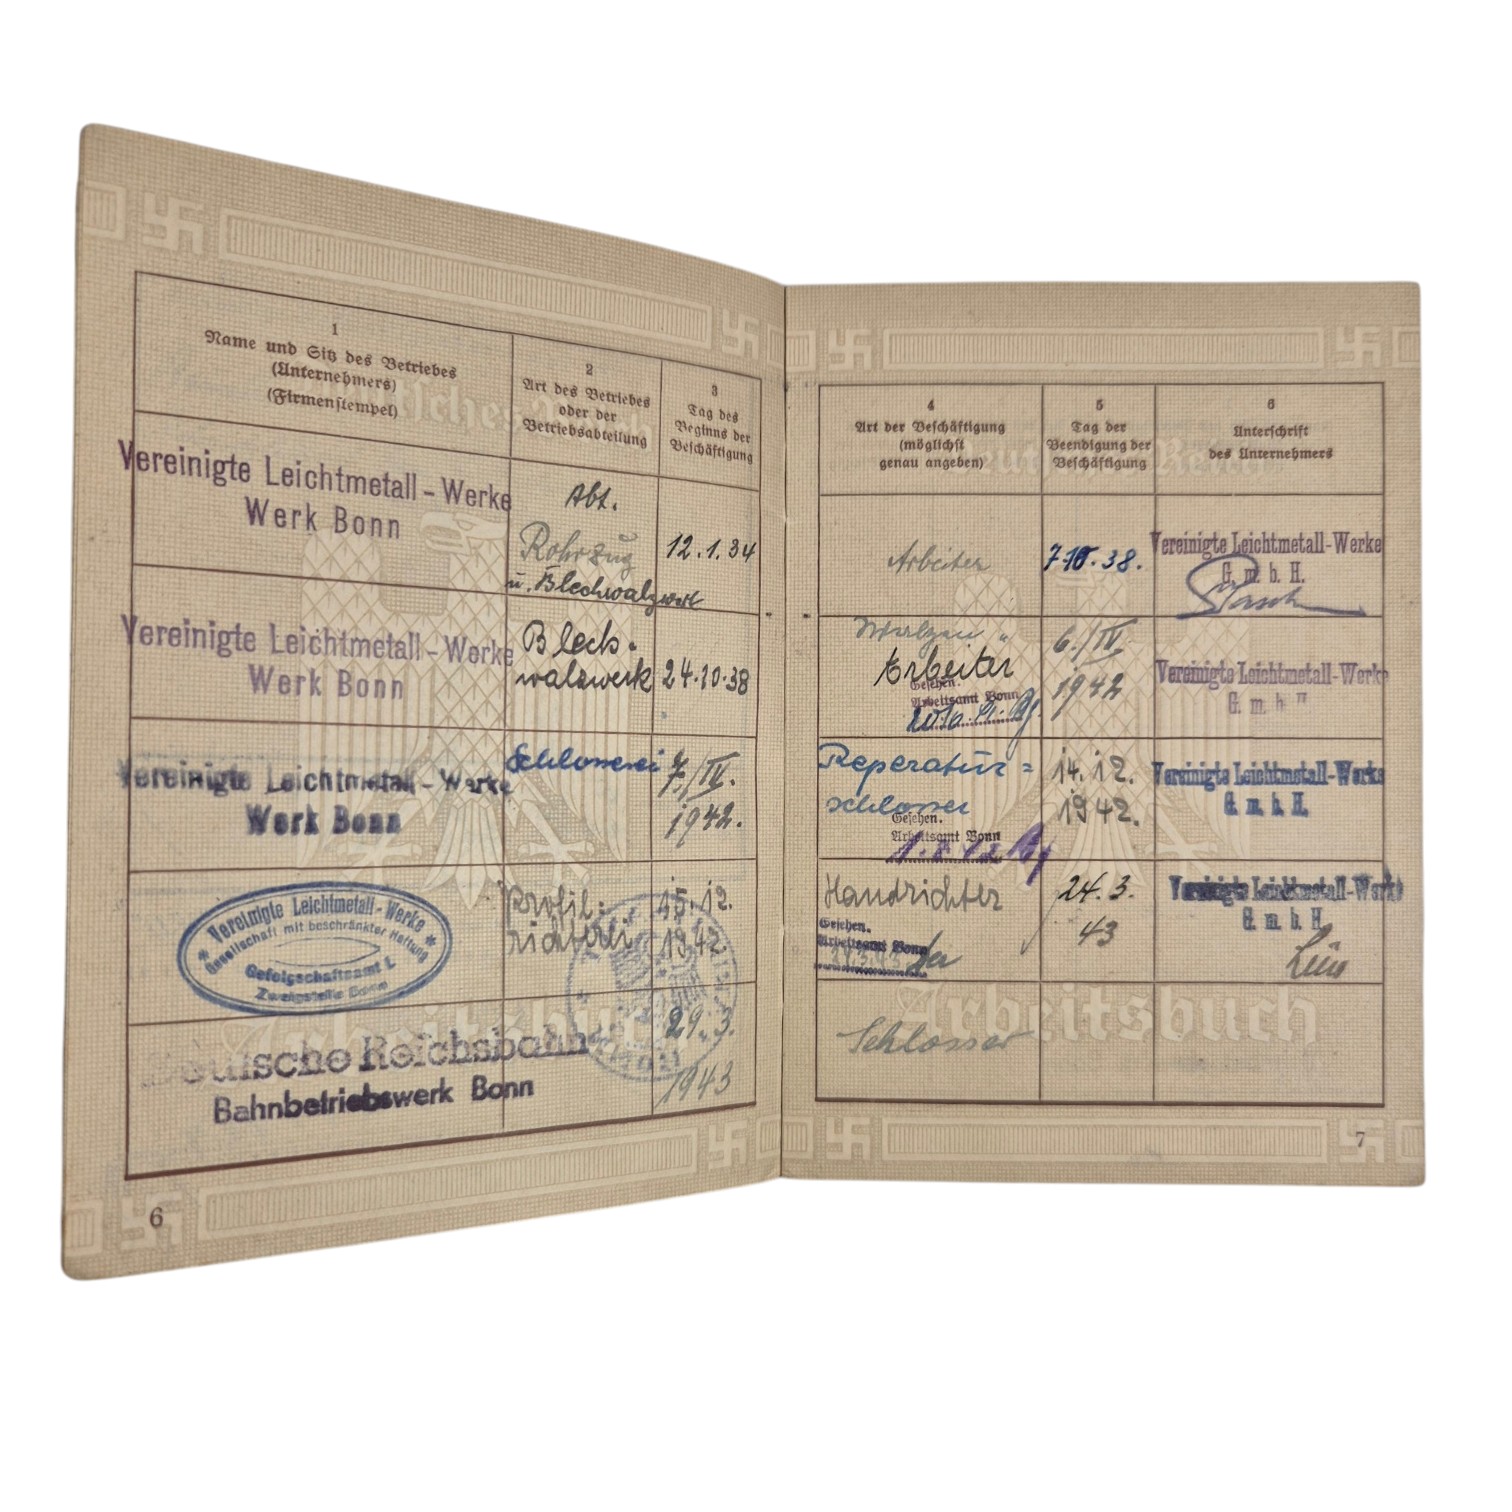 1
Name und Sitz des Betriebes
(Unternehmers)
(Firmenstempel)
2
Art des Betriebes
oder der
Betriebsabteilung
3
Tag des
Beginns der
Beschäftigung
Vereinigte Leichtmetall-Werke
Werk Bonn
Abt.
Rohrzug
u. Blechwalzwerk
12.1.34
Vereinigte Leichtmetall-Werke
Werk Bonn
Blech-
walzwerk
24.10.38
Vereinigte Leichtmetall-Werke
Werk Bonn
Schlosserei
7./IV.
1942.
Vereinigte Leichtmetall-Werke
Gesellschaft mit beschränkter Haftung
Gefolgschaftsamt L
Zweigstelle Bonn
Profil-
richterei
15.12.
1942
Deutsche Reichsbahn
Bahnbetriebswerk Bonn
29.3.
1943
6
4
Art der Beschäftigung
(möglichst
genau angeben)
5
Tag der
Beendigung der
Beschäftigung
6
Unterschrift
des Unternehmers
Arbeiter
7.10.38.
Vereinigte Leichtmetall-Werke
G. m. b. H.
Walzen-
Arbeiter
Gesehen.
Arbeitsamt Bonn
6./IV.
1942
Vereinigte Leichtmetall-Werke
G. m. b. H.
Reperatur=
schlosser
Gesehen.
Arbeitsamt Bonn
14.12.
1942.
Vereinigte Leichtmetall-Werke
G. m. b. H.
Handrichter
Gesehen.
Arbeitsamt Bonn
24.3.
43
Vereinigte Leichtmetall-Werke
G. m. b. H.
Schlosser
Deutsches Reich
Arbeitsbuch
Deutsches Reich
Arbeitsbuch
7